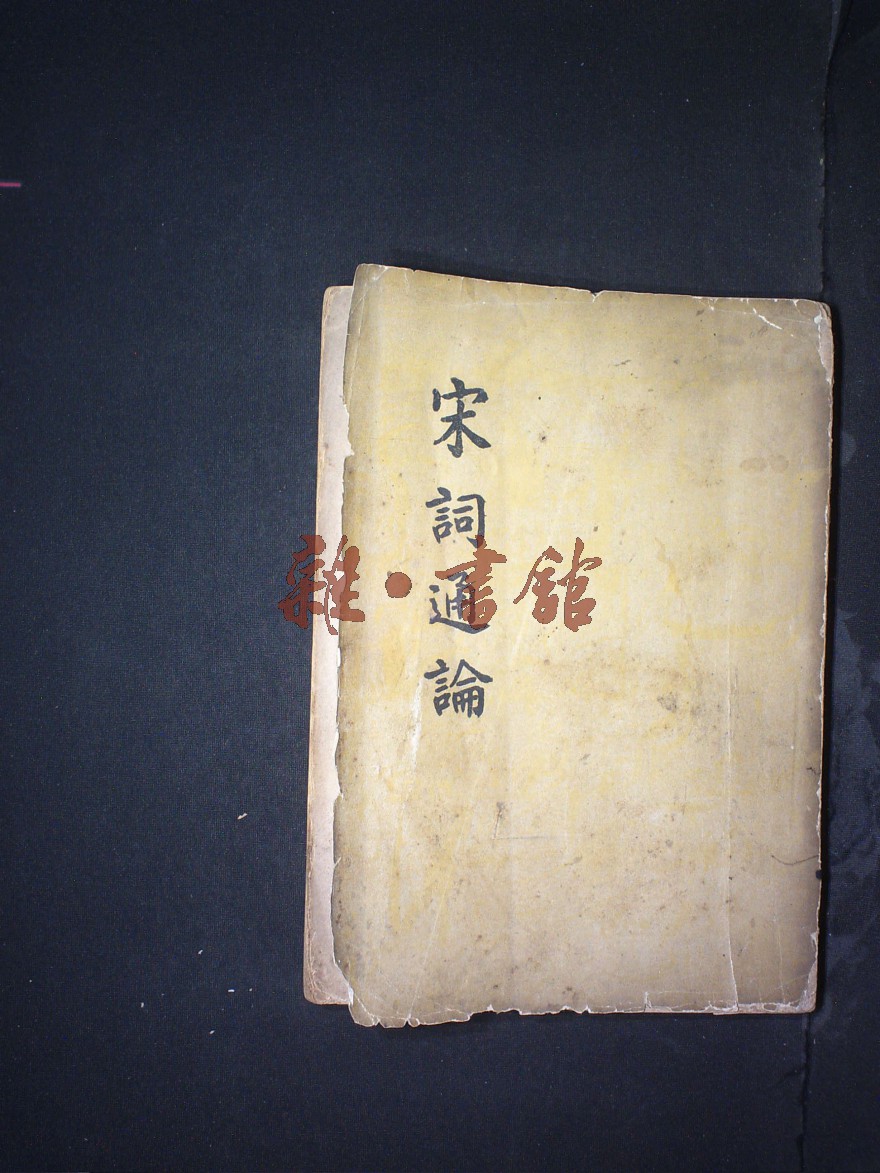 宋詞通論
雜·書館